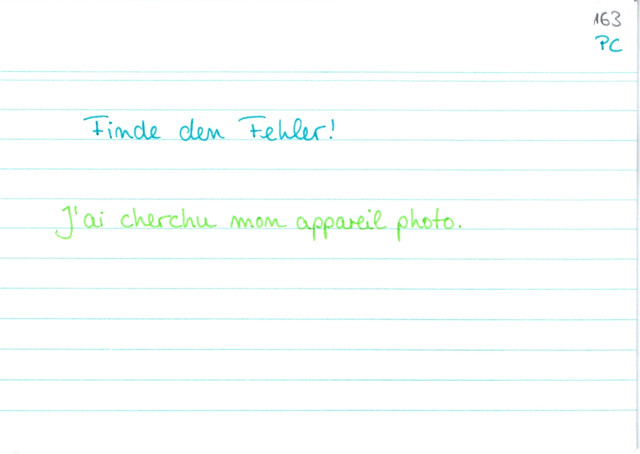 163
PC
Finde den Fehler!
J'ai cherchu mon appareil photo.